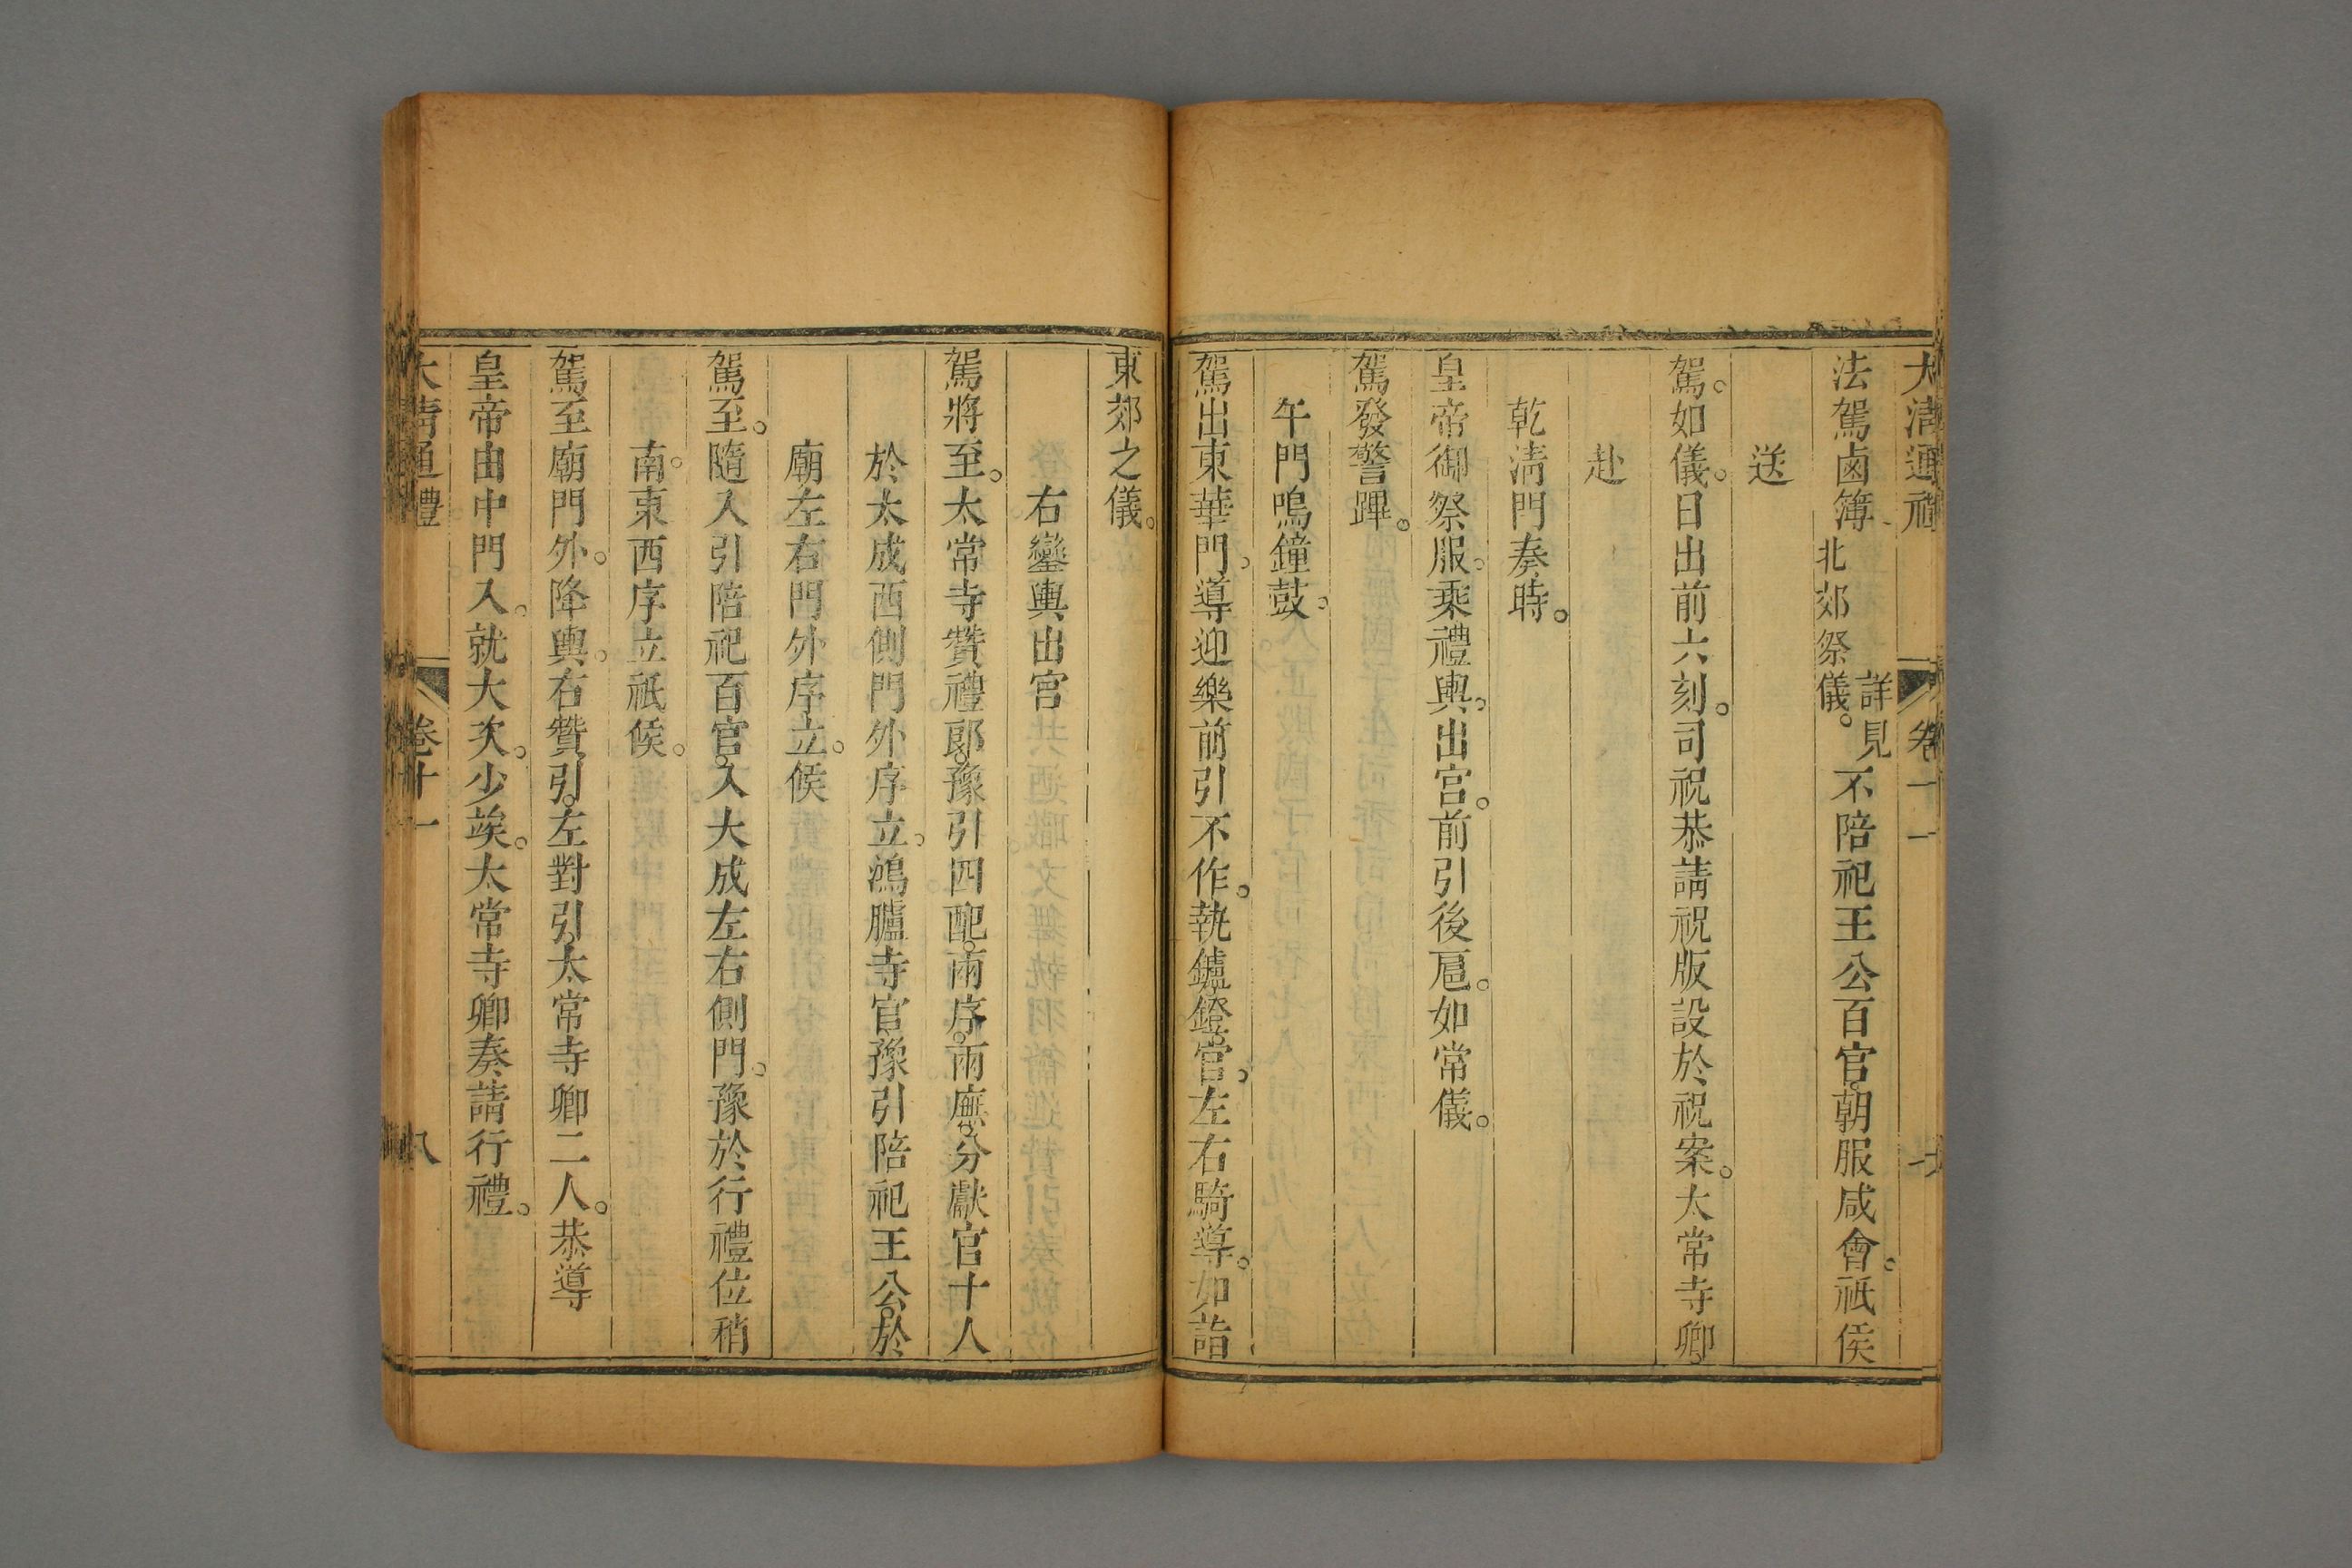 大清通禮 卷十一
法駕鹵簿詳見北郊祭儀。不陪祀王公百官。朝服咸會。祇俟
送
駕。如儀。日出前六刻。司祝恭請祝版設於祝案。太常寺卿。
赴
乾淸門奏時。
皇帝御祭服。乘禮輿。出宮。前引後扈。如常儀。
駕發警蹕。
午門鳴鐘鼓。
駕出東華門。導迎樂前引不作。執鑪鐙官。左右騎導。如詣
東郊之儀。
右鑾輿出宮
駕將至。太常寺贊禮郎。豫引四配。兩序。兩廡。分獻官十人
於太成西側門外序立。鴻臚寺官豫引陪祀王公。於
廟左右門外序立。候
駕至。隨入引陪祀百官。入大成左右側門。豫於行禮位稍
南。東西序立祇候。
駕至廟門外。降輿。右贊引。左對引。太常寺卿二人。恭導
皇帝由中門入。就大次。少竢。太常寺卿奏請行禮。
大淸通禮 卷十一 八